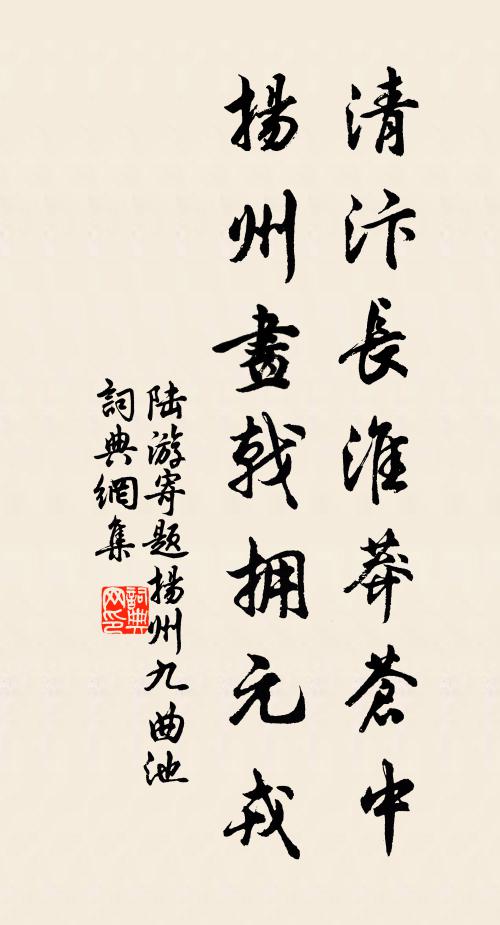 清汴長淮莽蒼中
揚州畫戟拥元戎
陆游寄题揚州九曲池
詞典網集
詞典网印